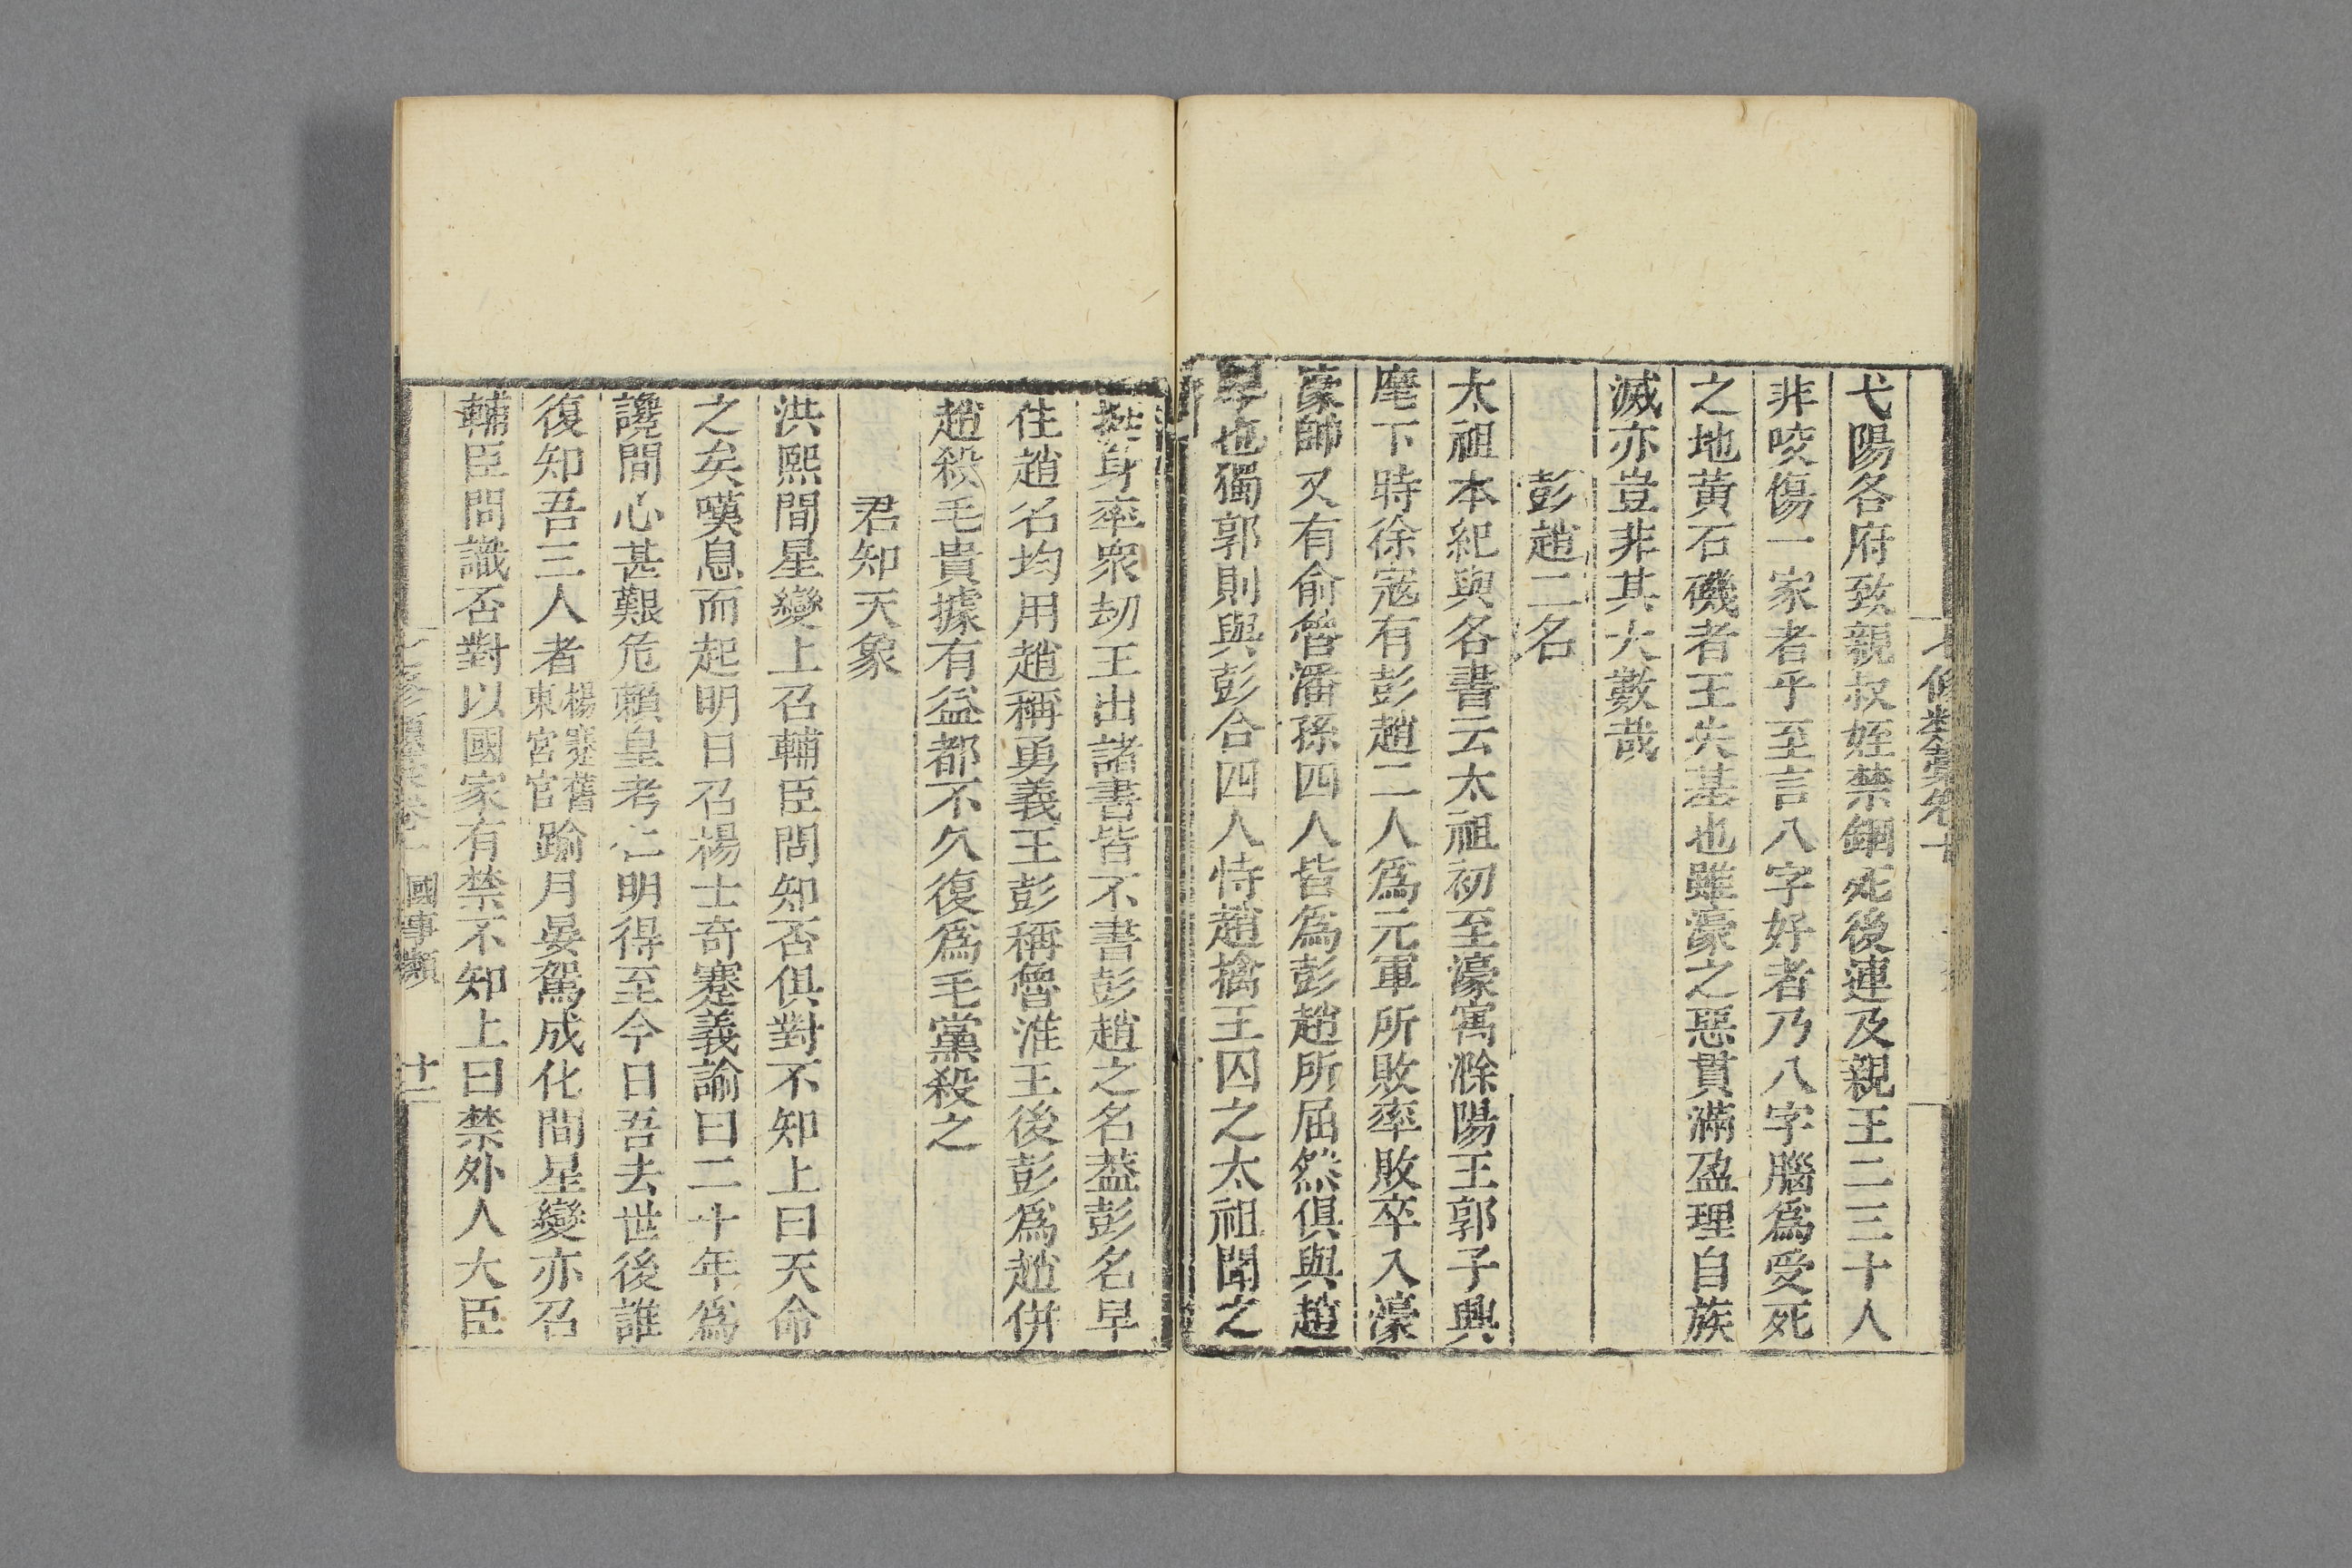 弋陽各府致親叔姪禁錮死後連及親王二三十人
非咬傷一家者乎至言八字好者乃八字腦爲受死
之地黄石磯者王失基也雖濠之惡貫滿盈理自族
滅亦豈非其大數哉
彭趙二名
太祖本紀與各書云太祖初至濠寓滁陽王郭子興
麾下時徐宼有彭趙二人爲元軍所敗率敗卒入濠
濠帥又有俞魯潘孫四人皆爲彭趙所屈然俱與趙
厚也獨郭則與彭合四人恃趙擒王囚之太祖聞之
挺身率衆刧王出諸書皆不書彭趙之名葢彭名早
住趙名均用趙稱勇義王彭稱魯淮王後彭爲趙併
趙殺毛貴據有益都不久復爲毛黨殺之
君知天象
洪熙間星變上召輔臣問知否俱對不知上曰天命
之矣嘆息而起明日召楊士奇蹇義諭曰二十年爲
讒間心甚艱危賴皇考仁明得至今日吾去世後誰
復知吾三人者楊蹇舊東宮官踰月晏駕成化間星變亦召
輔臣問識否對以國家有禁不知上曰禁外人大臣
國事類
十二